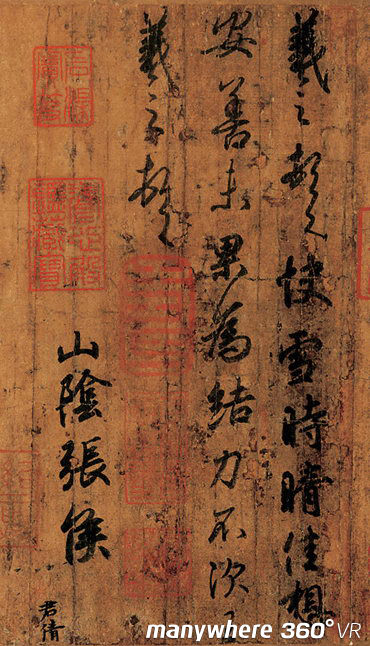 羲之頓首快雪時晴佳想
安善未果為結力不次王
羲之頓首
山陰張侯
君倩
manywhere 360° VR